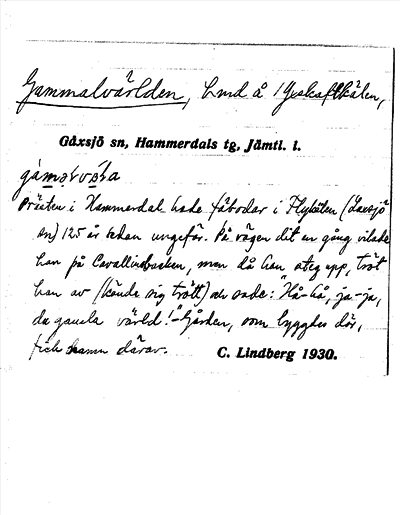 Gammalvärlden, hmd å Yxskaftkälen,
Gåxsjö sn, Hammerdals tg, Jämtl. l.
Prästen i Hammerdal hade fäbodar i Flykälen (Laxsjö
sn) 125 år sedan ungefär. På vägen dit en gång vilade
han på Cavallinbacken, men då han steg upp, tröt
han av (kände sig trött) och sade: "Hå-hå, ja-ja,
du gamla värld!" Gården, som byggdes där,
fick namn därav. C. Lindberg 1930.